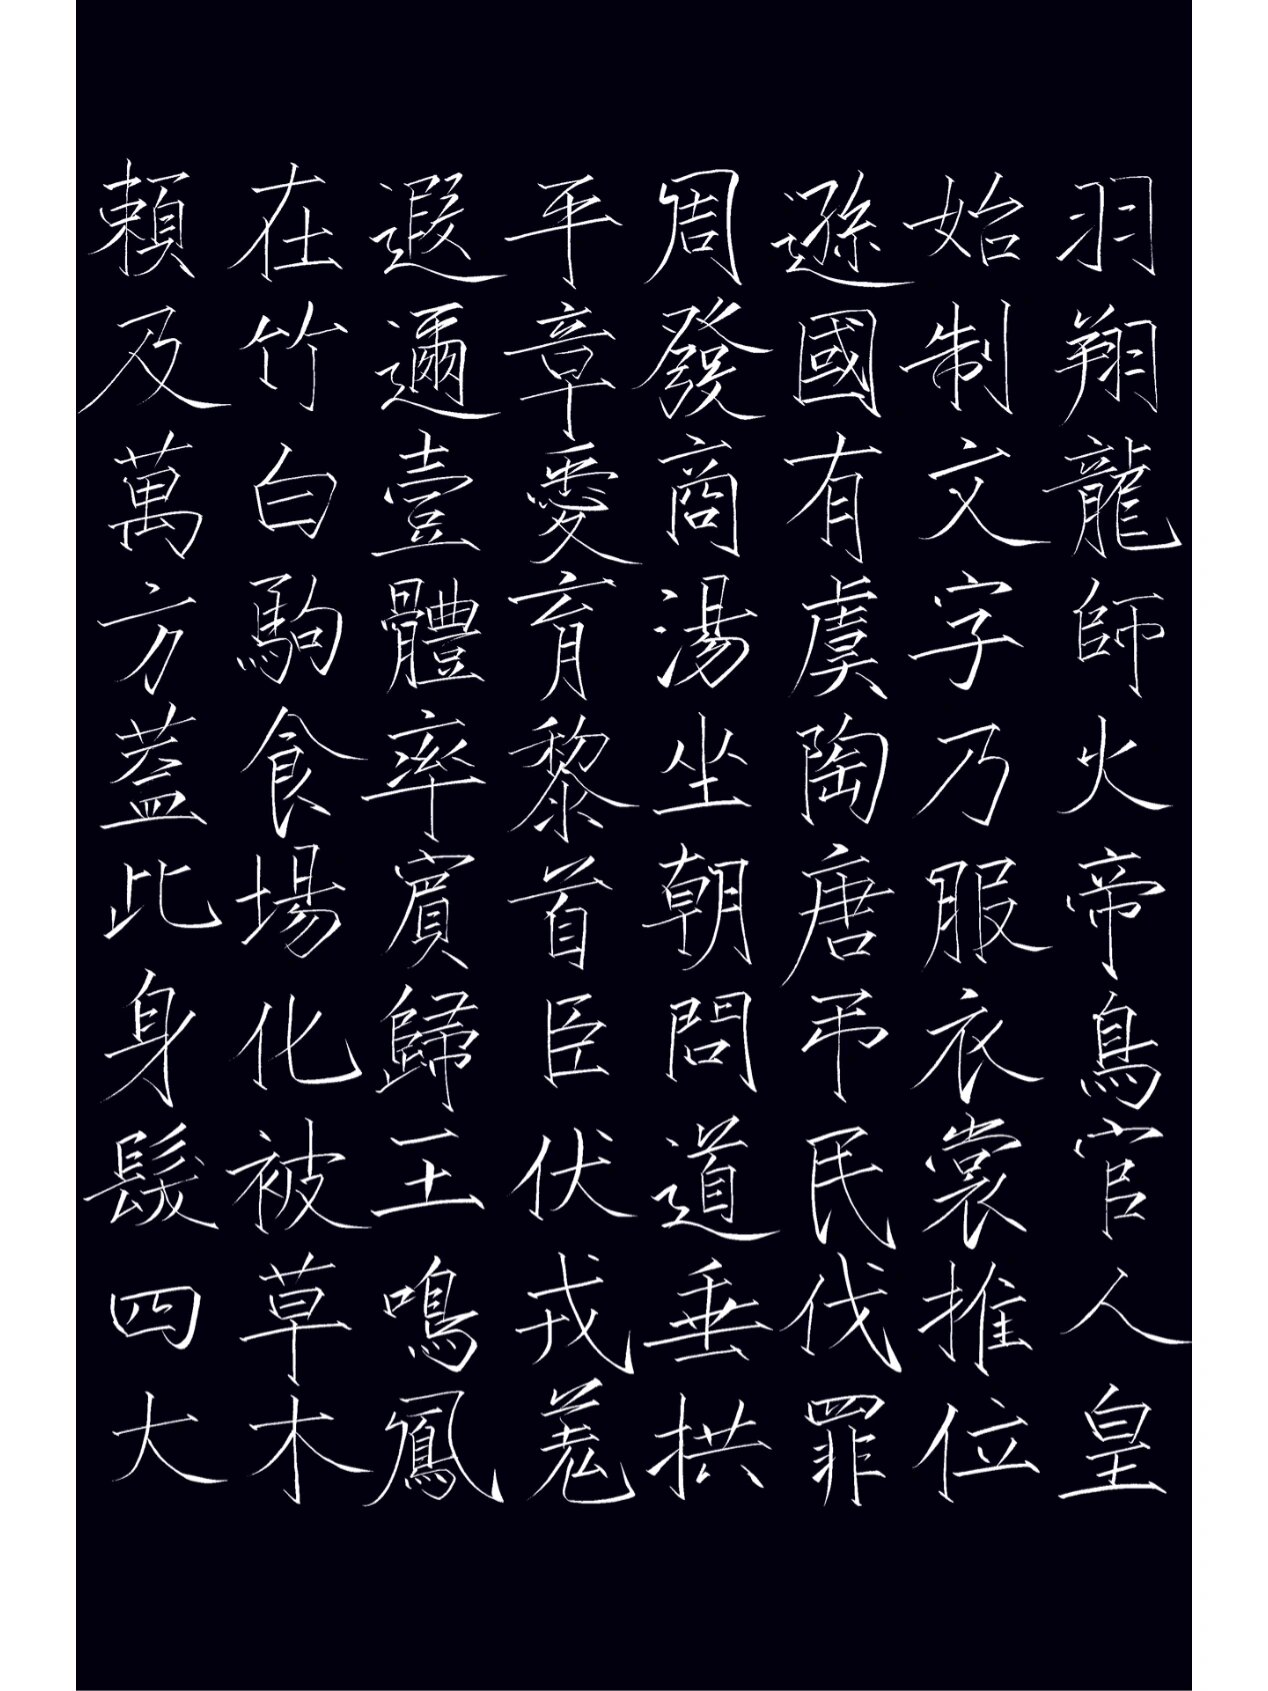 羽翔龍師火帝鳥官人皇
始制文字乃服衣裳推位
遜國有虞陶唐弔民伐罪
周發商湯坐朝問道垂拱
平章愛育黎首臣伏戎羌
遐邇壹體率賓歸王鳴鳳
在竹白駒食場化被草木
賴及萬方蓋此身髮四大